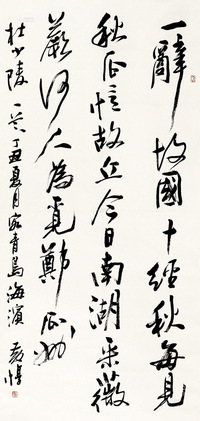 一辭故國十經秋每見
秋瓜憶故丘今日南湖采薇
蕨何人為覓鄭瓜州
杜少陵 丁丑夏月客青島海濱